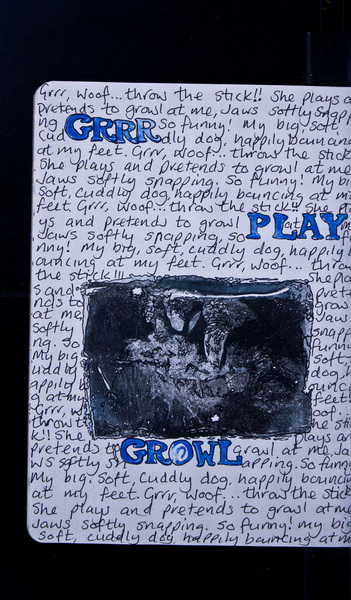 Grrr, Woof... throw the stick!! She plays a
Pretends to growl at me, Jaws softly snapp
ing GRRR So funny! My big, soft,
cud dly dog, happily bouncing
at my feet. Grrr, woof... throw the stick
She plays and pretends to growl at me
Jaws softly snapping. So funny! My bi
Soft, cuddly dog, happily bouncing at m
feet. Grrr, woof... throw the stick She
ys and pretends to growl PLAY at
Jaws softly snapping, so
nny! my big, soft, cuddly dog, happily b
ouncing at my feet. Grrr, woof... throw
the stick!!! She pla
s and pret
nds to grow
at me, Jaw
softly snapp
ng. So funn
My big soft,
cuddly dog,
appily b bounc
g at my
Grrr, w oof...
throw t
k!! She plays an
pretends to GROWL growl at me, Ja
ws softly sn apping. So funn
My big, soft, cuddly dog, happily bouncin
at my feet. Grrr, woof,... throw the stick
She plays and pretends to growl at me
Jaws softly snapping. So funny! my big
Soft, cuddly dog happily bouncing at m